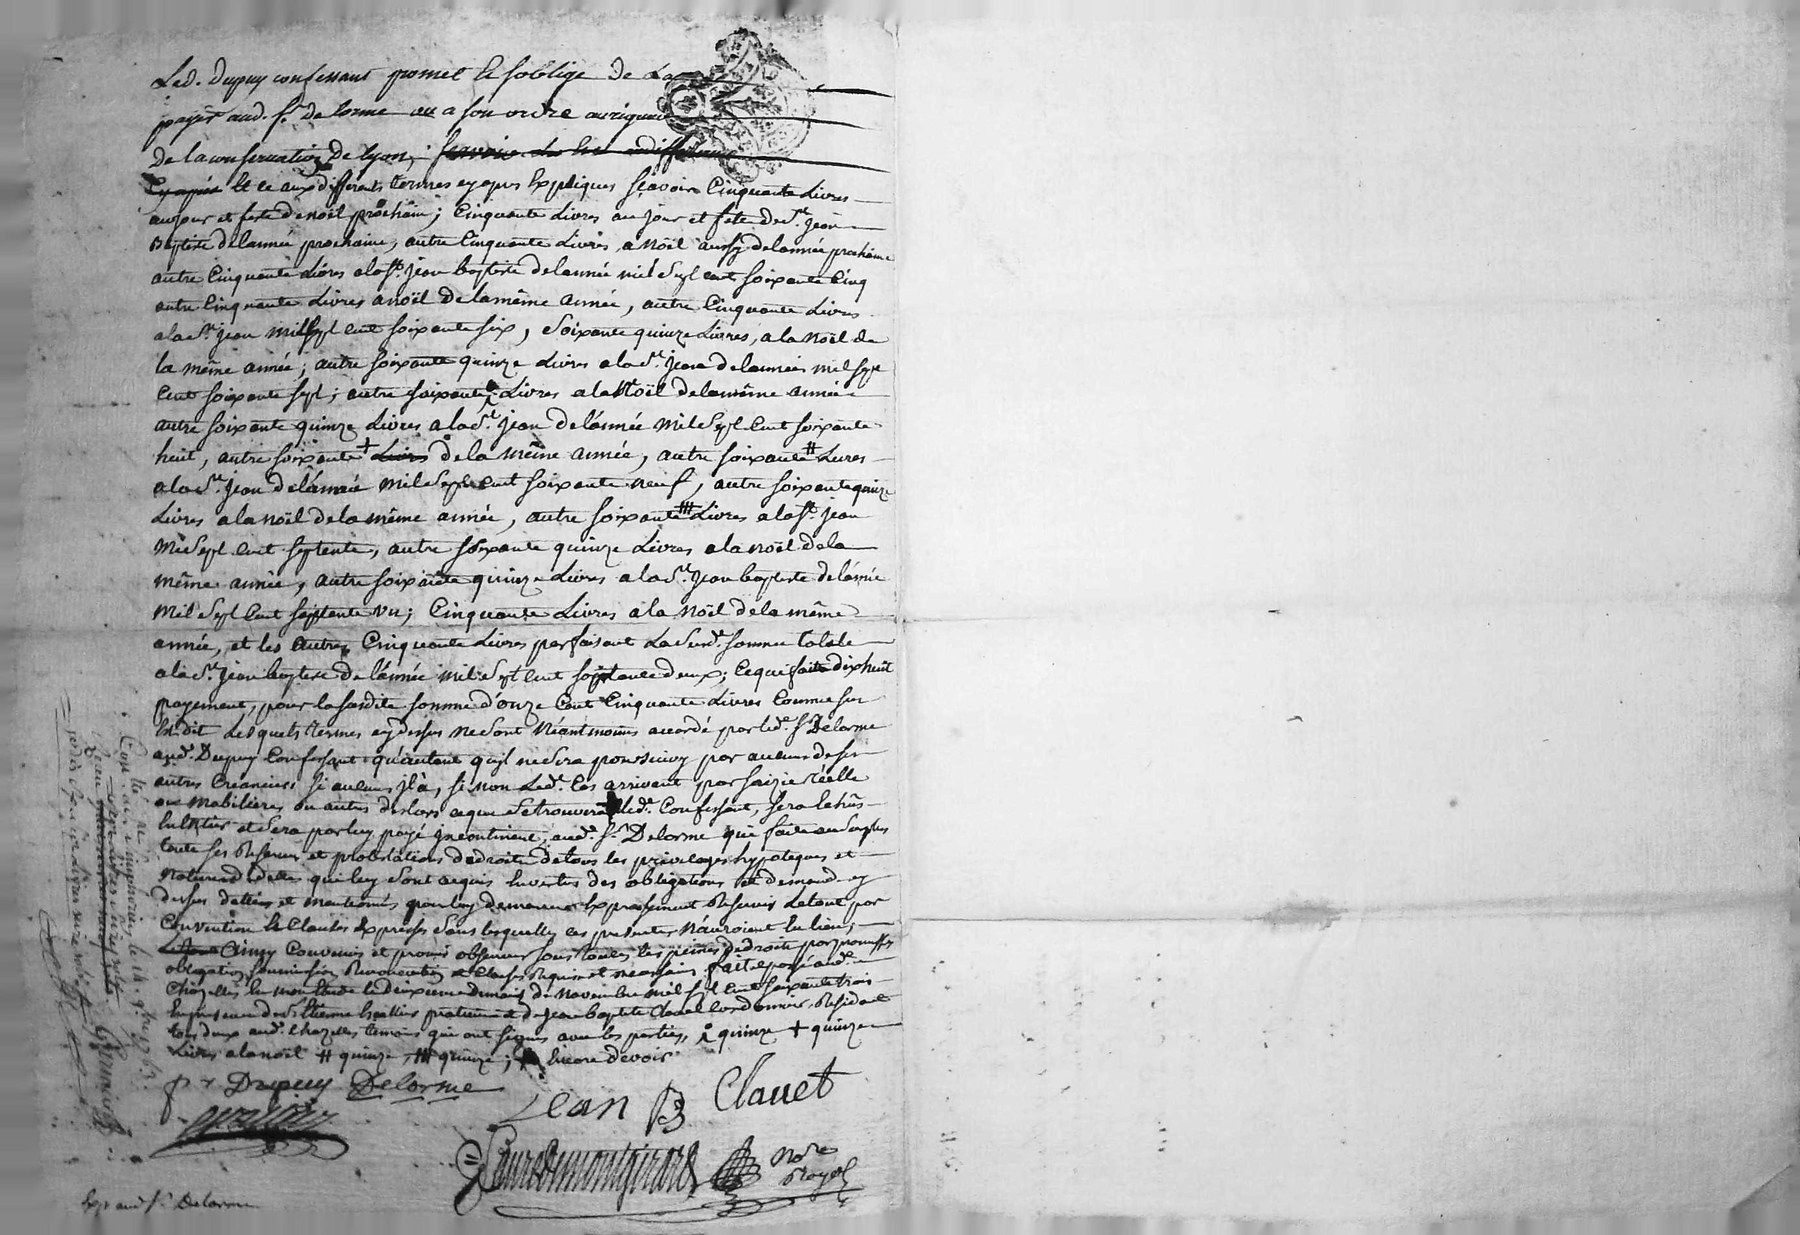 Led. Dupuy confessant promet et soblige de La
payer aud. Sr. De lorme ou a son ordre arigueur
De la conservation de Lyon,
Et ce aux differents termes cy apres Expliqués sçavoir Cinquante Livres
au jour et feste de noël prochain; Cinquante Livres au jour et fete de St. Jean
Baptiste de lannée prochaine, autre Cinquante Livres a noël aussy de lannée prochaine
autre Cinquante Livres a la St. jean baptiste de lannée mil Sept cent soixante Cinq
autre Cinquante Livres a noël de la même année, autre Cinquante Livres
a la St. jean mil Sept cent soixante six, Soixante quinze Livres, a la noël de
la même année; autre soixante quinze Livres a la St. jean de lannée mil sept
Cent soixante sept; autre soixante Livres a la Noël de la même année
autre soixante quinze Livres a la St. jean de l'année mil Sept Cent soixante
huit, autre soixante + Livres de la même année, autre soixante # Livres
a la St. jean de l'année mil Sept Cent soixante neuf, autre soixante quinze
Livres a la noël de la même année, autre soixante Livres a la St. jean
mil Sept Cent septente, autre soixante quinze Livres a la noël de la
même année, autre soixante quinze Livres a la St. jean baptiste de l'année
mil Sept Cent septente un; Cinquante Livres a la noël de la même
année, et les autres Cinquante Livres parfaisant La Susd. somme totale
a la St. jean baptiste de l'année mil Sept cent septante deux; Ce qui fait dix huit
payement, pour la susdite somme d'onze Cent Cinquante Livres Comme sus
Est dit Lesquels termes cy dessus ne sont néantmoins accordé par led. Sr Delorme
aud. Dupuy Confessant qu'autant qu'il ne Sera poursuivy par aucun de ses
autres Creanciers si aucuns il a, si non Led. Cas arrivant par saizie réelle
ou mobiliere ou autre deslors ce que Se trouvera led. Confessant, sera
et Sera par luy payé incontinent aud. Sr. Delorme qui fait au Surplus
toute ses Reserves et protestations de droit de tous les privileges hypoteques et
qui luy Sont acquis En vertus des obligations et demand. cy
dessus dattées et mentionnés pour luy demeurer Expressement Reservés Le tout par
Convention et Clauses Expresses Sans lesquelles ces presentes n'auroient eu lieu,
Ainsy Convenu et promis observer sous toutes les peines de droit par promesses
obligation, soumission, Renonciation et Clauses Requises et necessaires. fait et passé aud.
Chazelles En mon Etude Le Deuxieme du mois de Novembre mil sept cent soixante trois
En presence de Sr. Etienne praticien et de Jean Baptiste Clavet Cordonnier, Residant
tous deux aud. Chazelles temoins qui ont signés avec les parties, quinze + quinze
Livres a la noël # quinze, quinze; Encore devoir
Dupuy Delorme
Jean B Clauet
Nore
Royal
Exp aud Sr. Delorme